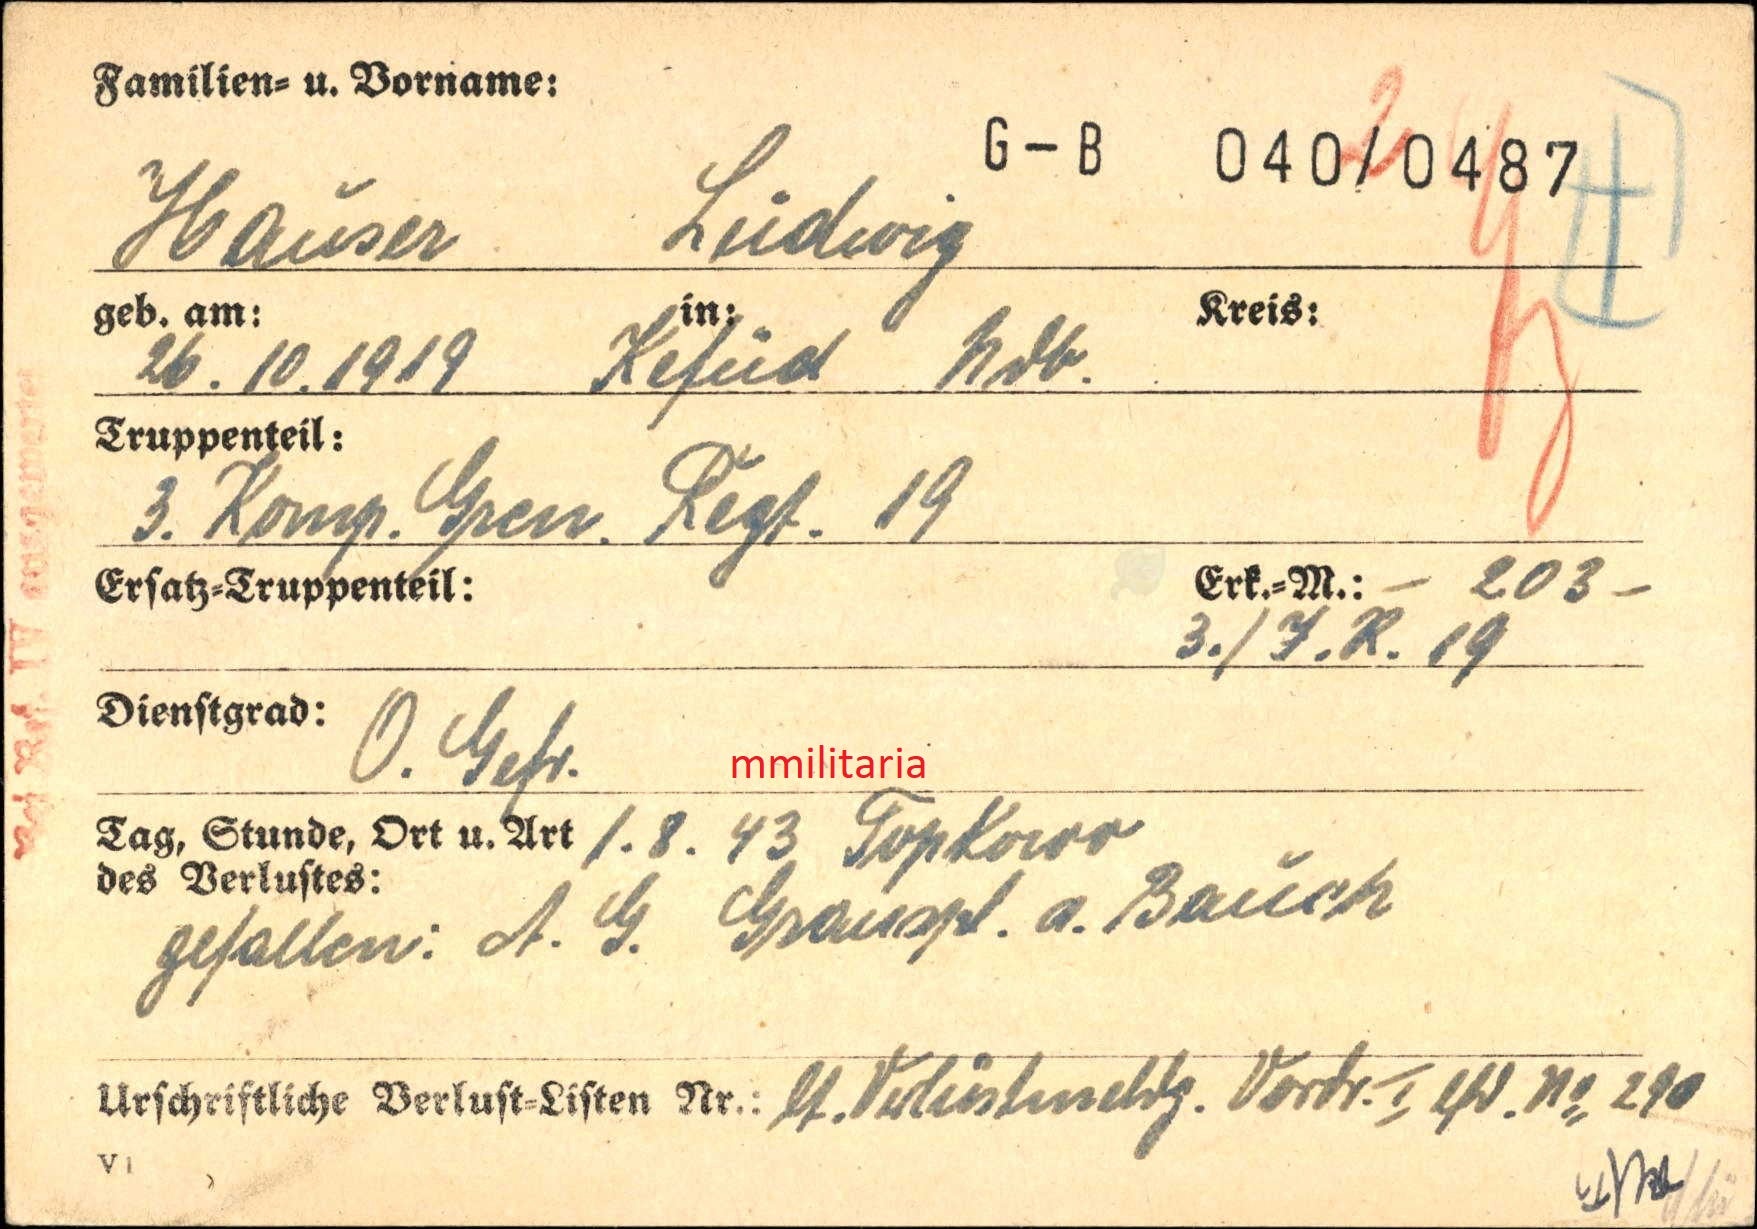 Familien- u. Vorname:
G-B 040/0487
Hauser Ludwig
geb. am: in: Kreis:
26.10.1919 Ndb.
Truppenteil:
3. Komp. Gren. Regt. 19
Ersatz-Truppenteil: Erk.-M.: – 203 –
3./I.R. 19
Dienstgrad: O. Gefr.
mmilitaria
Tag, Stunde, Ort u. Art 1.8.43 Topkowo
des Verlustes:
gefallen: A. G. Granspl. a. Bauch
Urschriftliche Verlust-Listen Nr.: lt. Verlustmeldg. Vordr. I, lfd. No. 290
V 1